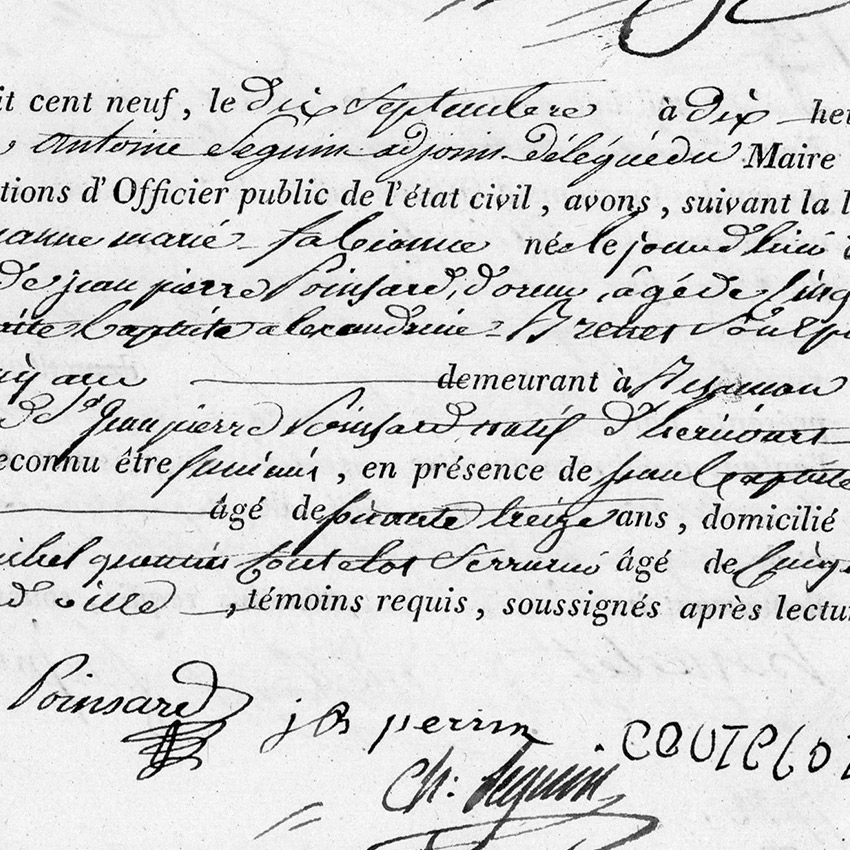 it cent neuf, le dix Septembre à dix heu
antoine Seguin adjoint délégué du Maire
tions d'Officier public de l'état civil, avons, suivant la l
anne marie fabienne née le jourd'hui
de jean pierre Poinsard, d'orun, âgé de
baptiste alexandrine Brenet son Ep
ans demeurant à
Sr Jean pierre Poinsard natif d'hericourt
econnu être féminin, en présence de
âgé de soixante treize ans, domicilié
quentin Coutelot Serrurier âgé de
ville, témoins requis, soussignés après lectur
Poinsard
j B perrin
COUTELOT
Ch: Seguin